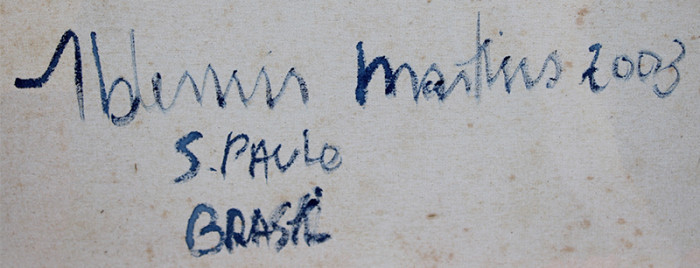 Aldemir Martins 2003
S. PAULO
BRASIL